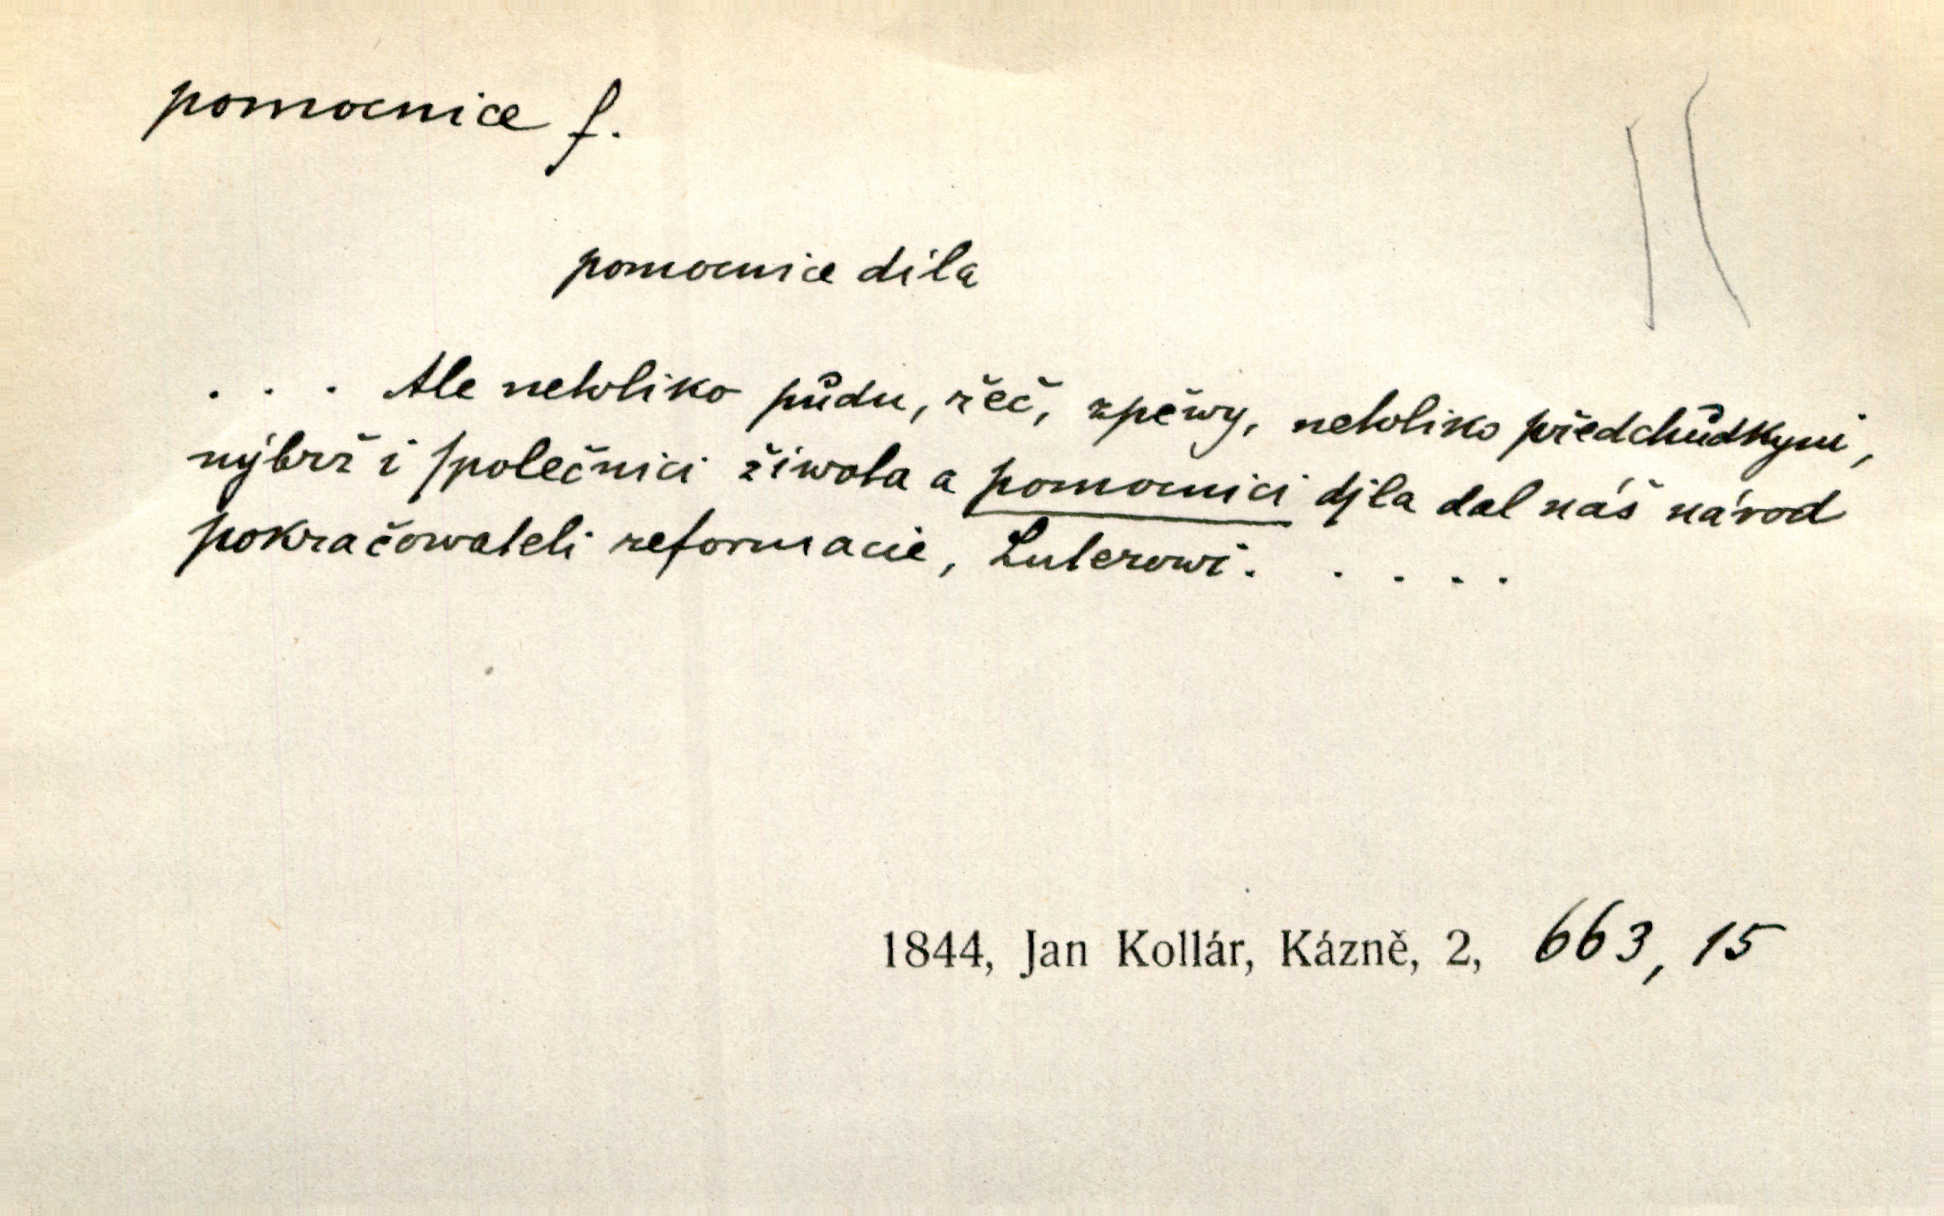 pomocnice f.
pomocnice díla
. . . Ale netoliko půdu, řeč, zpěwy, netoliko předchůdkyni,
nýbrž i společnici žiwota a pomocnici djla dal náš národ
pokračowateli reformacie, Luterowi. . . . .
1844, Jan Kollár, Kázně, 2, 663, 15